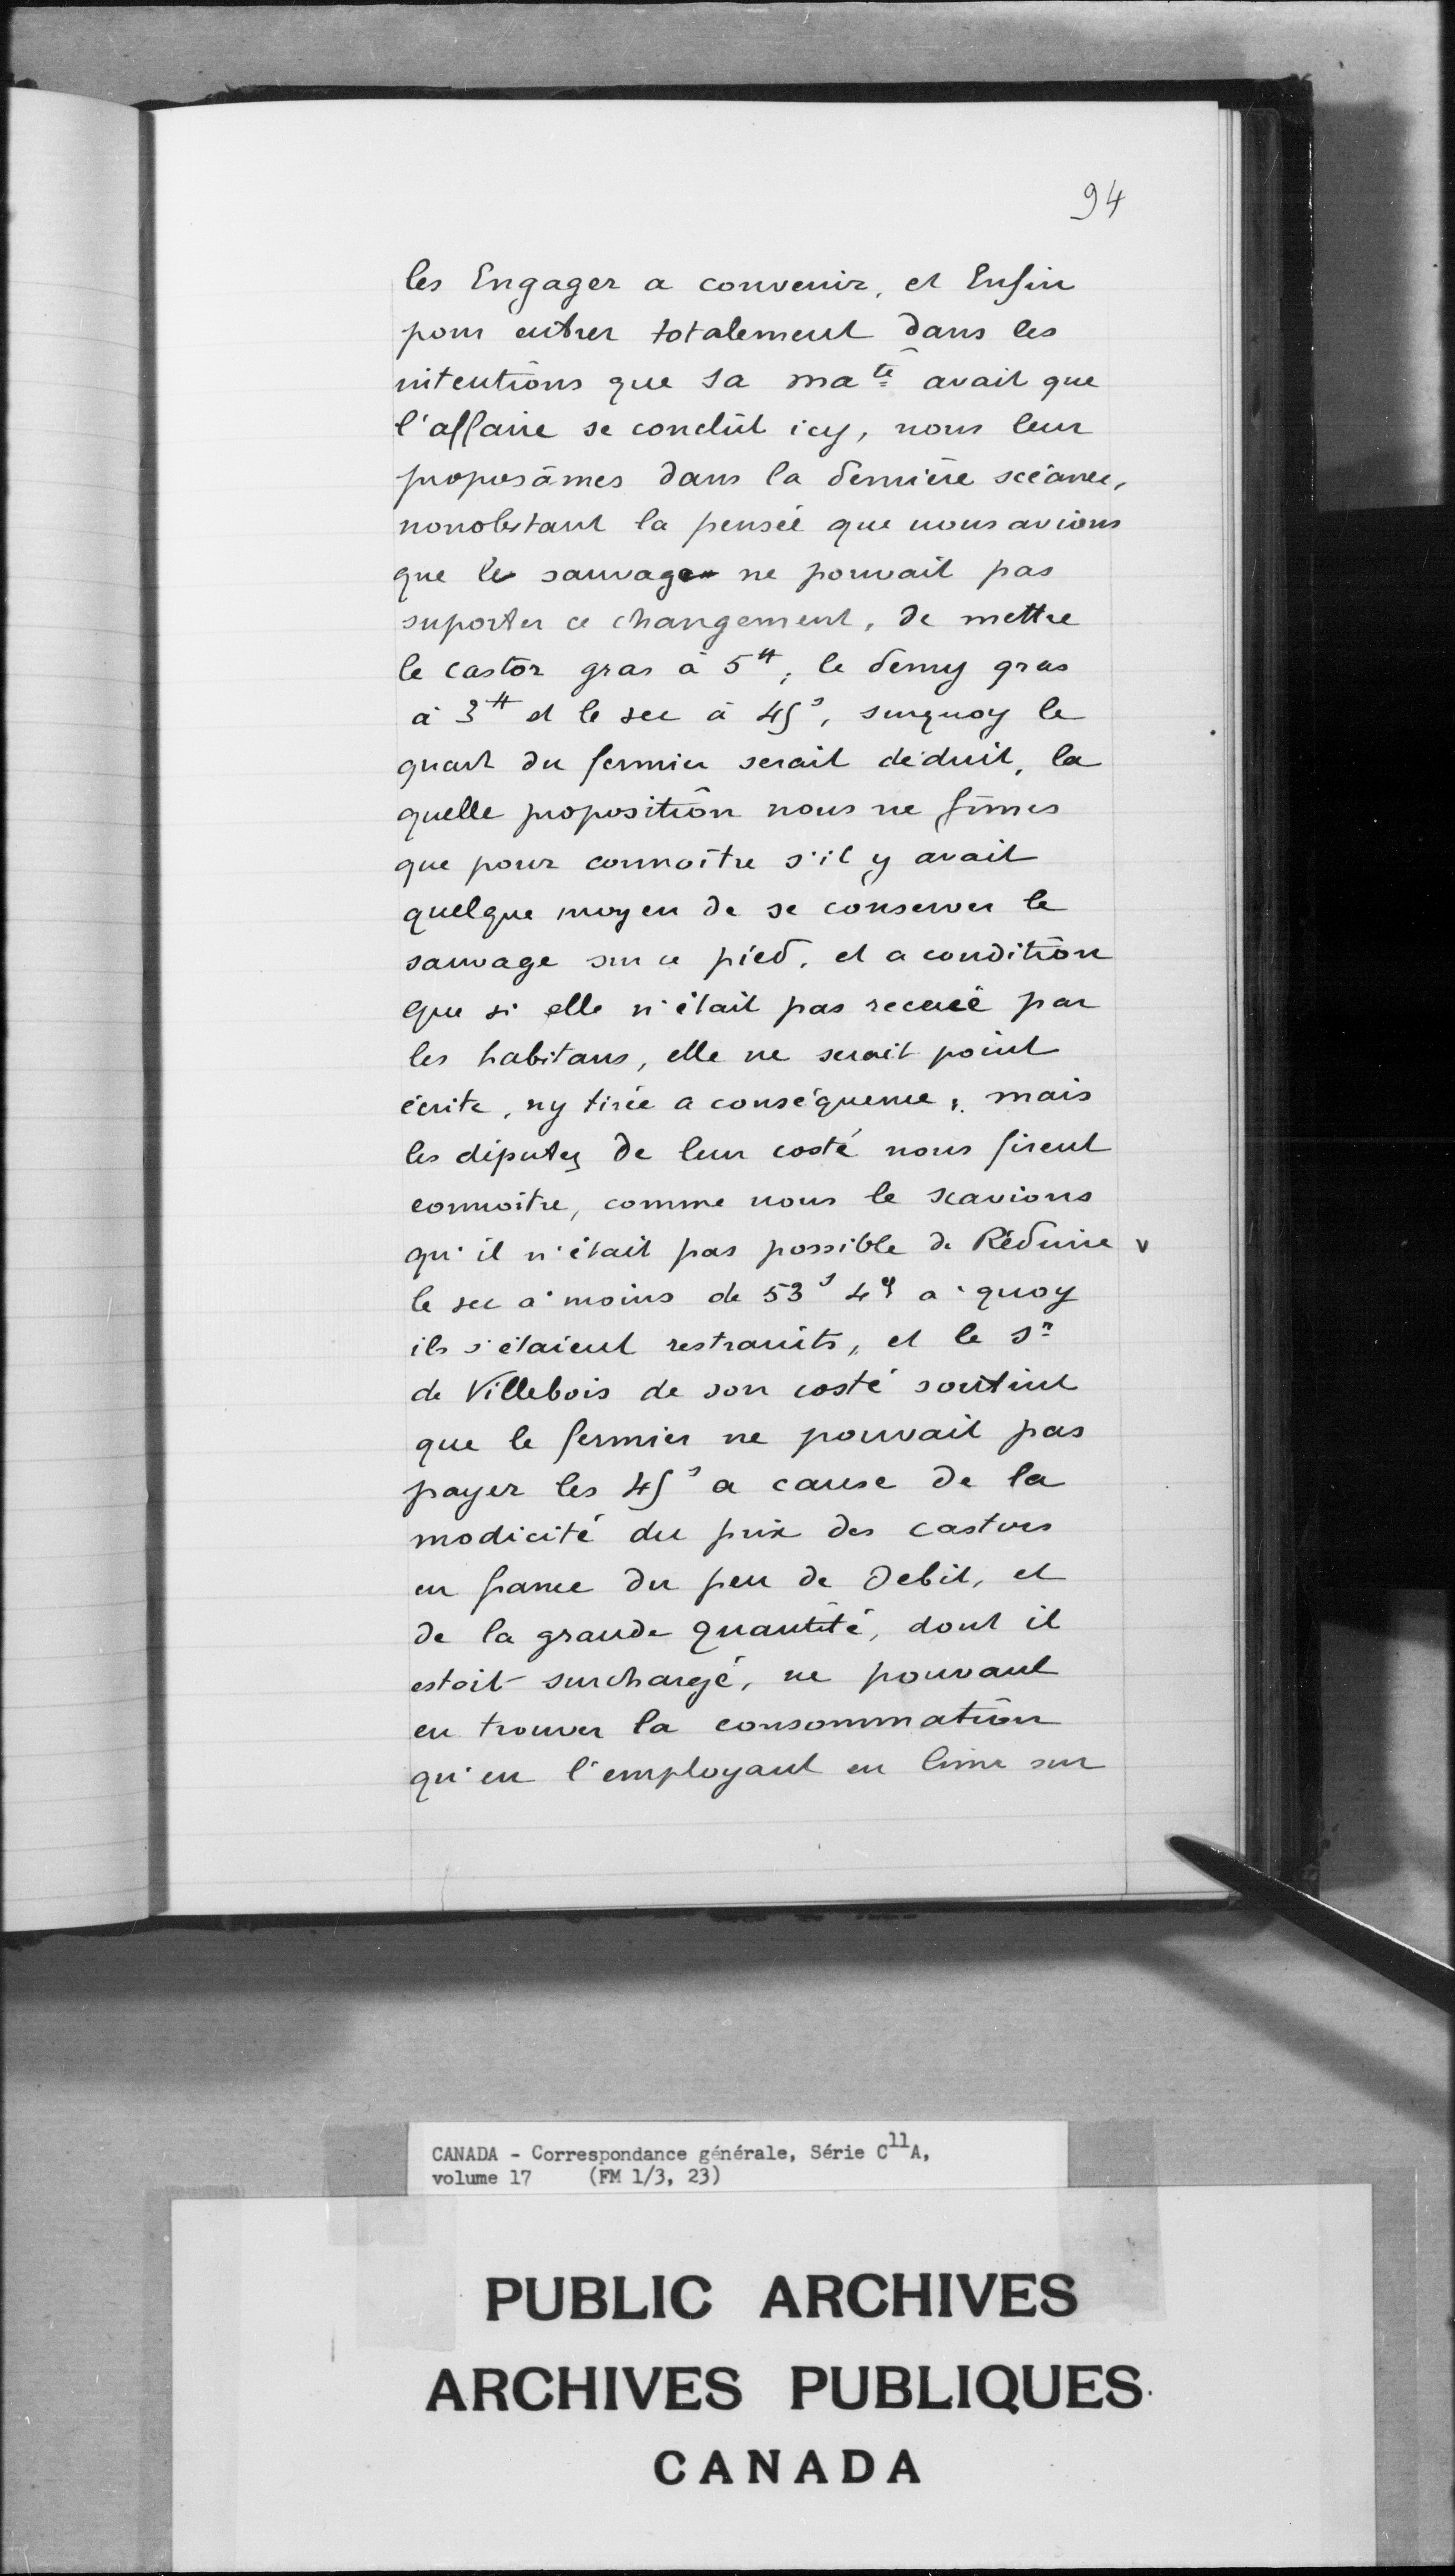 94
les Engager a convenir, et Enfin
pour entrer totalement dans les
intentions que sa ma.té avait que
l'affaire se conclût icy, nous leur
proposâmes dans la dernière scéance,
nonobstant la pensée que nous avions
que le sauvage ne pouvait pas
suporter ce changement, de mettre
le castor gras à 5tt, le demy gras
à 3tt et le sec à 45s, surquoy le
quart du fermier serait déduit, la
quelle proposition nous ne fîmes
que pour connoître s'il y avait
quelque moyen de se conserver le
sauvage sur ce pied, et a condition
que si elle n'était pas receuë par
les habitans, elle ne serait point
écrite, ny tirée a conséquence; mais
les députez de leur costé nous firent
connoitre, comme nous le scavions
qu'il n'était pas possible de Réduire v
le sec à moins de 53s 4d a quoy
ils s'étaient restraints, et le Sr
de Villebois de son costé soutint
que le fermier ne pouvait pas
payer les 45s a cause de la
modicité du prix des castors
en france du peu de debit, et
de la grande quantité, dont il
estoit surchargé, ne pouvant
en trouver la consommation
qu'en l'employant en
CANADA - Correspondance générale, Série C11A,
volume 17 (FM 1/3, 23)
PUBLIC ARCHIVES
ARCHIVES PUBLIQUES
CANADA